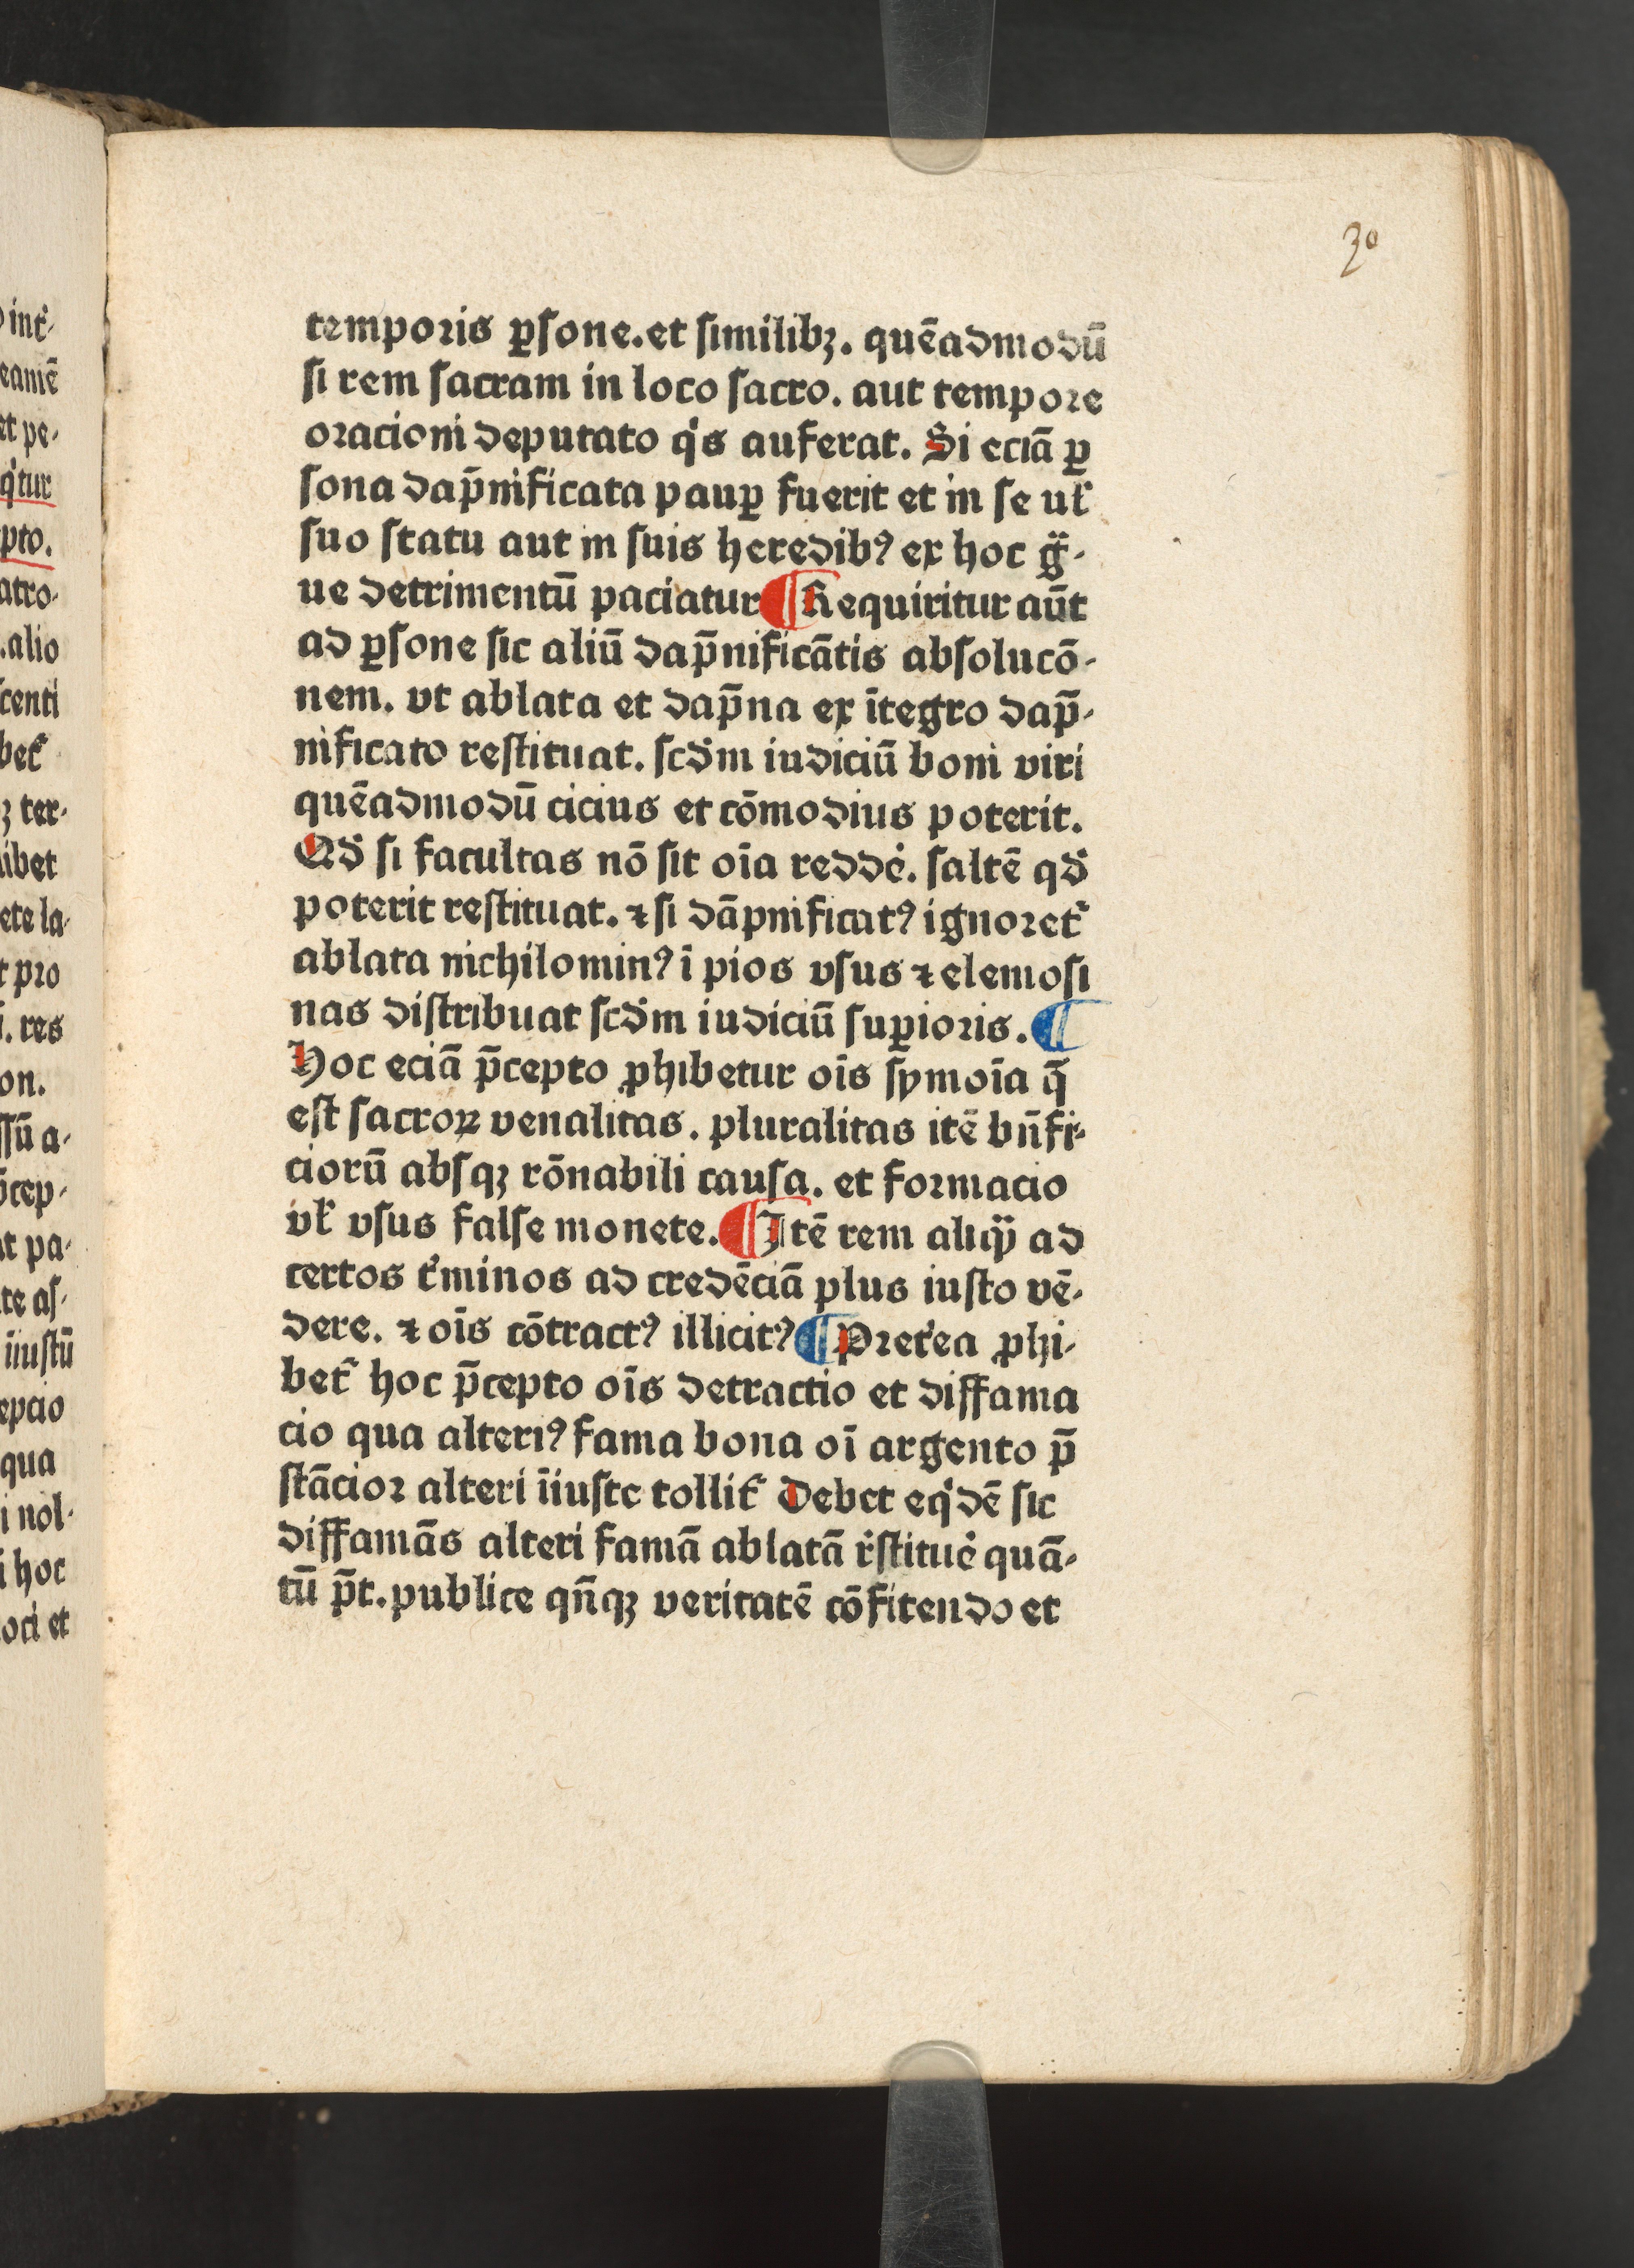 30
temporis ꝑſone. et ſimilibꝫ. quēadmodū
ſi rem ſacram in loco ſacro. aut tempore
oracioni deputato qͥs auferat. Si eciā ꝑ
ſona dap̄nificata pauꝑ fuerit et in ſe ul̓
ſuo ſtatu aut in ſuis heredibꝰ ex hoc gͣ⸗
ue detrimentū paciatur ¶ Requiritur aūt
ad ꝑſone ſic aliū dap̄nificātis abſolucō⸗
nem. vt ablata et dap̄na ex ītegro dap̄⸗
nificato reſtituat. ſcd̓m iudiciū boni viri
quēadmodū cicius et cōmodius poterit.
Qd̓ ſi facultas nō ſit oīa redde̓. ſaltē qd̓
poterit reſtituat. ⁊ ſi dāpnificatꝰ ignoret᷑
ablata nichilominꝰ ī pios vſus ⁊ elemoſi
nas diſtribuat ſcd̓m iudiciū ſuꝑioris. ¶
Hoc eciā p̄cepto ꝓhibetur oīs ſymoīa q̄
eſt ſacroꝝ venalitas. pluralitas itē bn̄fi⸗
ciorū abſqꝫ rōnabili cauſa. et formacio
vl̓ vſus falſe monete. ¶ Itē rem aliqͣ ad
certos t̓minos ad credēciā plus iuſto vē⸗
dere. ⁊ oīs cōtractꝰ illicitꝰ ¶ Pret̓ea ꝓhi⸗
bet᷑ hoc p̄cepto oīs detractio et diffama
cio qua alteriꝰ fama bona oī argento p̄
ſtācior alteri īiuſte tollit᷑ Debet eqͥdē ſic
diffamās alteri famā ablatā r̓ſtitue̓ quā⸗
tū p̄t. publice qn̄qꝫ veritatē cōfitendo et